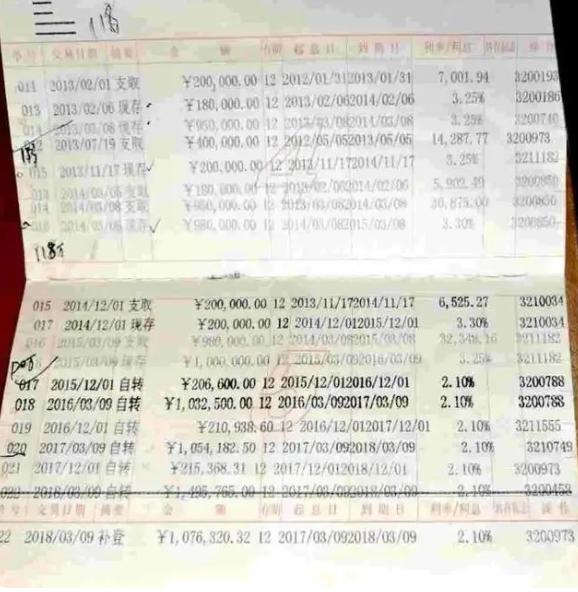 118
序号 交易日期 摘要 金 额 存期 起息日 到期日 利率/利息 操作
011 2013/02/01 支取 ¥200,000.00 12 2012/01/31 2013/01/31 7,001.94 3200193
013 2013/02/06 现存 ¥180,000.00 12 2013/02/06 2014/02/06 3.25% 3200186
014 2013/03/08 现存 ¥950,000.00 12 2013/03/08 2014/03/08 3.25% 3200740
2013/07/19 支取 ¥400,000.00 12 2012/05/05 2013/05/05 14,287.77 3200973
015 2013/11/17 现存 ¥200,000.00 12 2013/11/17 2014/11/17 3.25% 3211182
013 2014/03/08 支取 ¥180,000.00 12 2013/02/06 2014/02/06 3200850
014 2014/03/08 支取 ¥950,000.00 12 2013/03/08 2014/03/08 30,875.00 3200850
2014/03/08 现存 ¥980,000.00 12 2014/03/08 2015/03/08 3.30% 3200850
118万
015 2014/12/01 支取 ¥200,000.00 12 2013/11/17 2014/11/17 6,525.27 3210034
017 2014/12/01 现存 ¥200,000.00 12 2014/12/01 2015/12/01 3.30% 3210034
016 2015/03/09 支取 ¥980,000.00 12 2014/03/08 2015/03/08 3211182
2015/03/09 现存 ¥1,000,000.00 12 2015/03/09 2016/03/09 3.25% 3211182
017 2015/12/01 自转 ¥206,600.00 12 2015/12/01 2016/12/01 2.10% 3200788
018 2016/03/09 自转 ¥1,032,500.00 12 2016/03/09 2017/03/09 2.10% 3200788
019 2016/12/01 自转 ¥210,938.60 12 2016/12/01 2017/12/01 2.10% 3211555
020 2017/03/09 自转 ¥1,054,182.50 12 2017/03/09 2018/03/09 2.10% 3210749
021 2017/12/01 自转 ¥215,368.31 12 2017/12/01 2018/12/01 2.10% 3200973
2018/03/09 自转 12 2017/03/09 2018/03/09 2.10% 3200458
号 交易日期 摘要 金 额 存期 起息日 到期日 利率/利息 操作
22 2018/03/09 补登 ¥1,076,320.32 12 2017/03/09 2018/03/09 2.10% 3200973